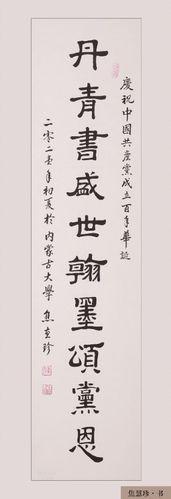 慶祝中國共產黨成立百年華誕
丹青書盛世翰墨頌黨恩
二零二壹年初夏於內蒙古大學 焦慧珍
焦慧珍·书